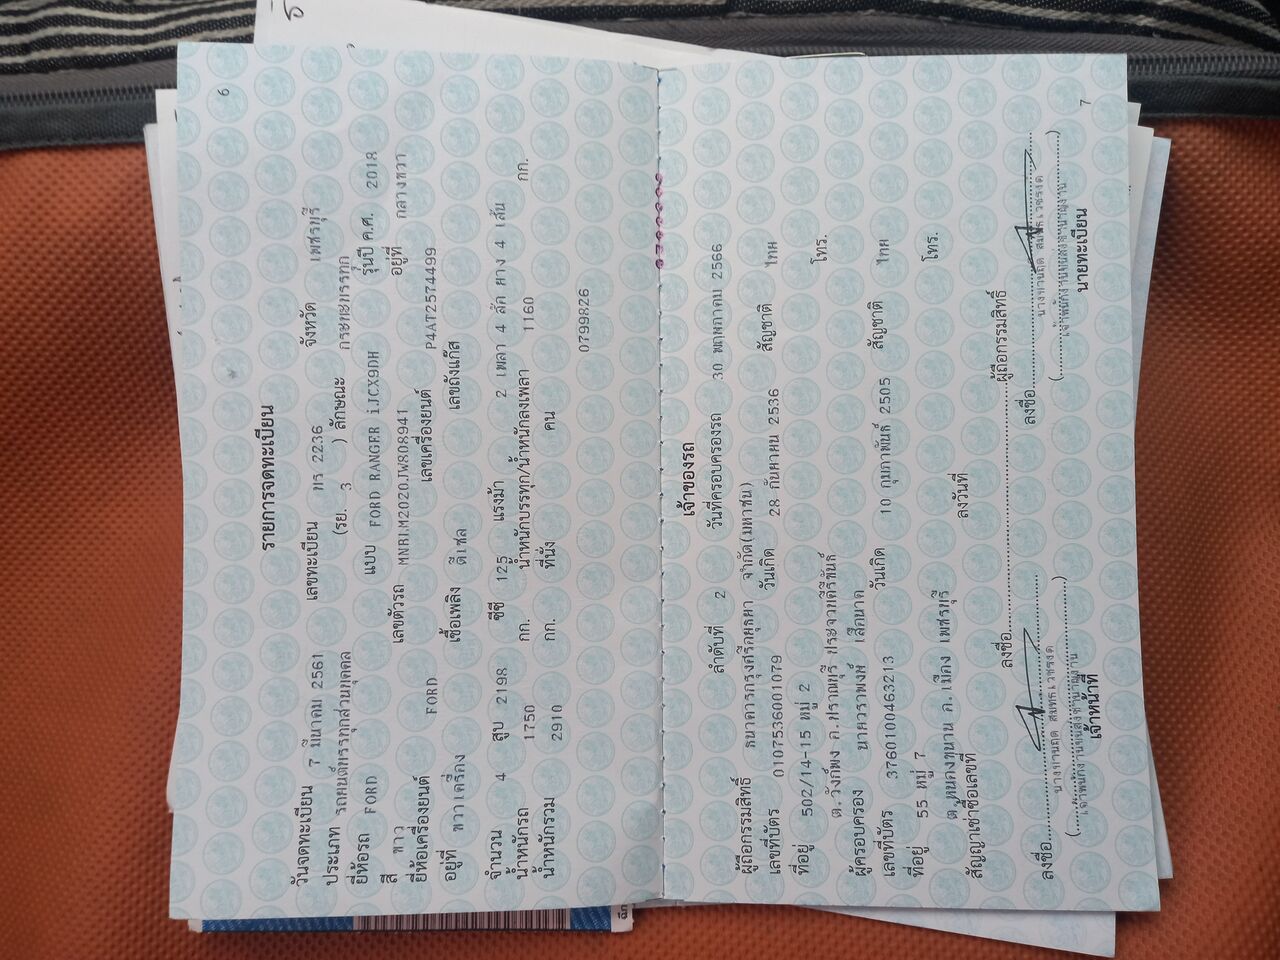 6
รายการจดทะเบียน
วันจดทะเบียน 7 มีนาคม 2561 เลขทะเบียน 2236 จังหวัด เพชรบุรี
ประเภท รถยนต์บรรทุกส่วนบุคคล (รย. 3 ) ลักษณะ กระบะบรรทุก
ยี่ห้อรถ FORD แบบ FORD RANGER iJCX9DH รุ่นปี ค.ศ. 2018
สี ขาว เลขตัวรถ MNBLM2020JW808941 อยู่ที่ กลางขวา
ยี่ห้อเครื่องยนต์ FORD เลขเครื่องยนต์ P4AT2574499
อยู่ที่ ขวาเครื่อง เชื้อเพลิง ดีเซล เลขถังแก๊ส
จำนวน 4 สูบ 2198 ซีซี 125 แรงม้า 2 เพลา 4 ล้อ ยาง 4 เส้น
น้ำหนักรถ 1750 กก. น้ำหนักบรรทุก/น้ำหนักลงเพลา 1160 กก.
น้ำหนักรวม 2910 กก. ที่นั่ง คน
0799826
เจ้าของรถ
ลำดับที่ 2 วันที่ครอบครองรถ 30 พฤษภาคม 2566
ผู้ถือกรรมสิทธิ์ ธนาคารกรุงศรีอยุธยา จำกัด(มหาชน)
เลขที่บัตร 0107536001079 วันเกิด 28 กันยายน 2536 สัญชาติ ไทย
ที่อยู่ 502/14-15 หมู่ 2
ต.วังก์พง อ.ปราณบุรี ประจวบคีรีขันธ์ โทร.
ผู้ครอบครอง นายวราพงษ์
เลขที่บัตร 3760100463213 วันเกิด 10 กุมภาพันธ์ 2505 สัญชาติ ไทย
ที่อยู่ 55 หมู่ 7
ต.หนองขนาน อ.เมือง เพชรบุรี โทร.
สัญญาเช่าซื้อเลขที่ ลงวันที่
ลงชื่อ ผู้ถือกรรมสิทธิ์
ลงชื่อ ลงชื่อ
เจ้าพนักงานขนส่งชำนาญงาน เจ้าพนักงานขนส่งชำนาญงาน
เจ้าหน้าที่ นายทะเบียน
7